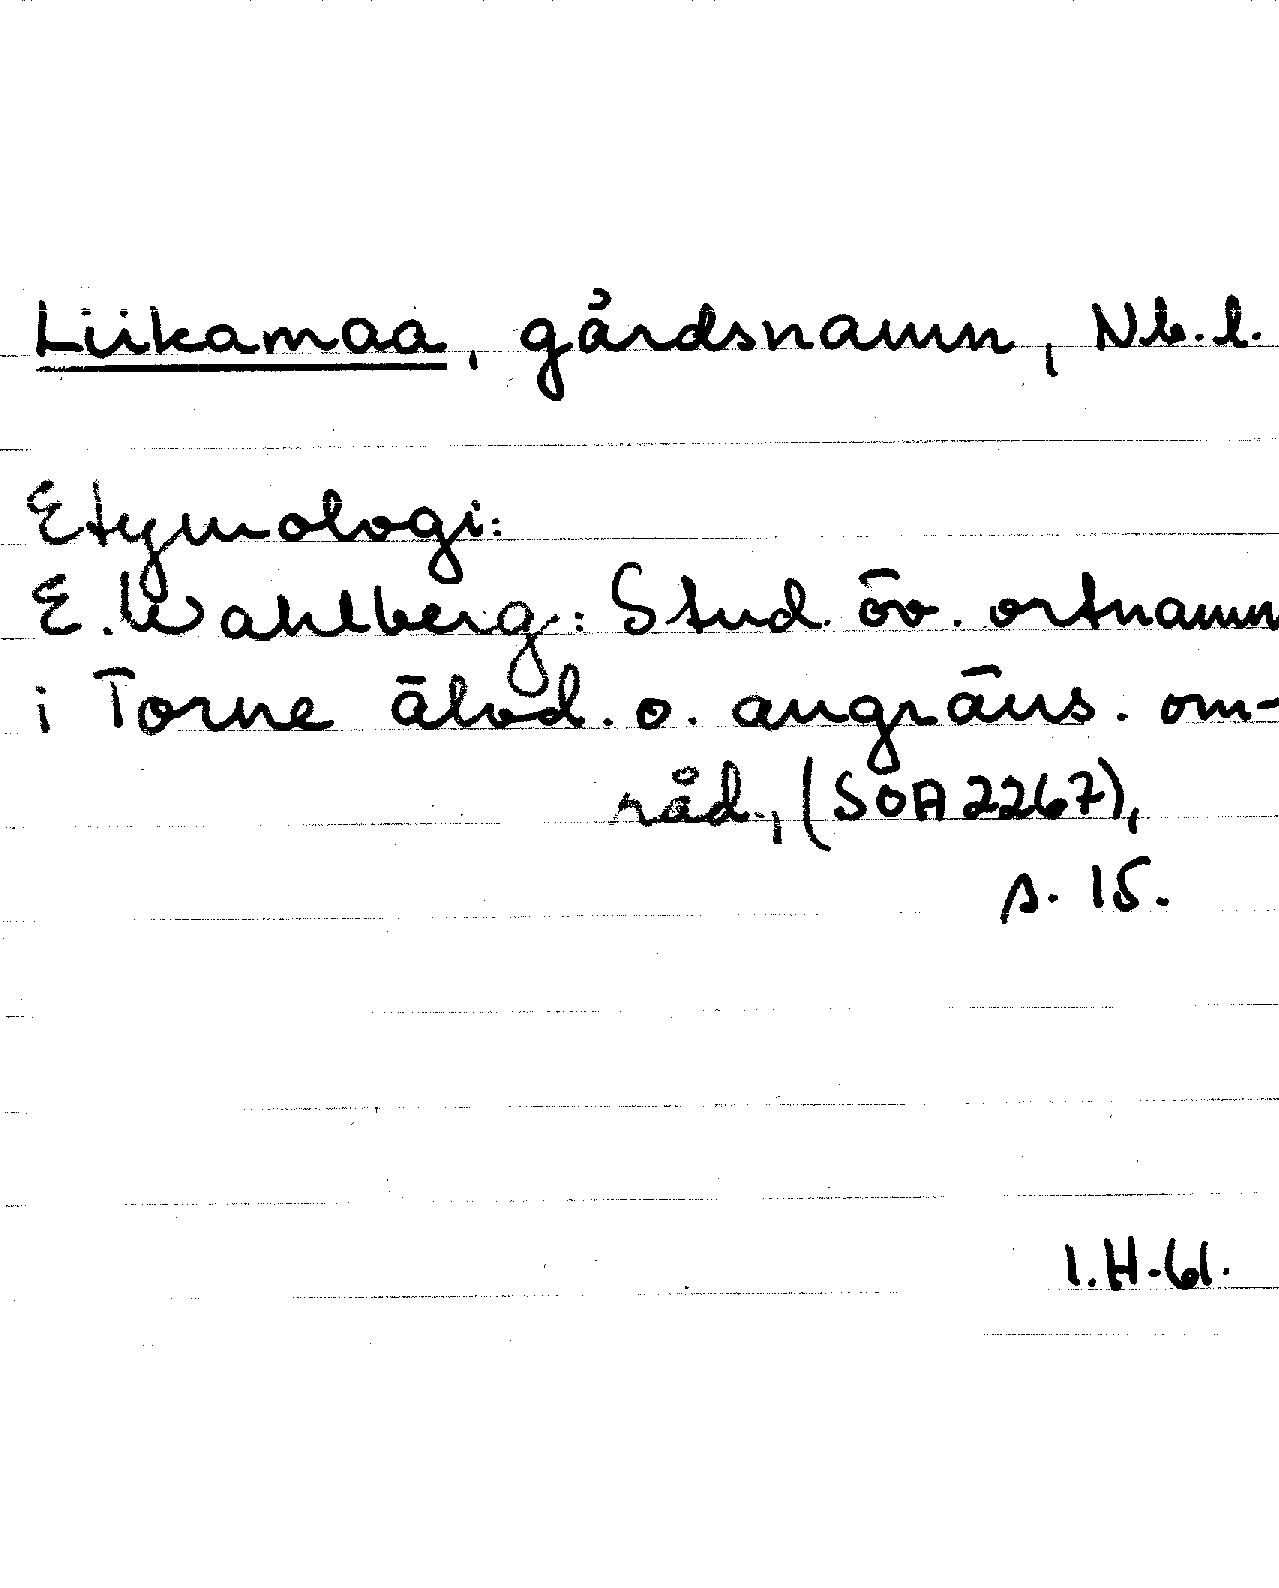 Liikamaa, gårdsnamn, Nb.l.
Etymologi:
E. Wahlberg: Stud. öv. ortnamn
i Torne älvd. o. angräns. om-
råd., (SOA 2267),
s. 15.
I.H-61.